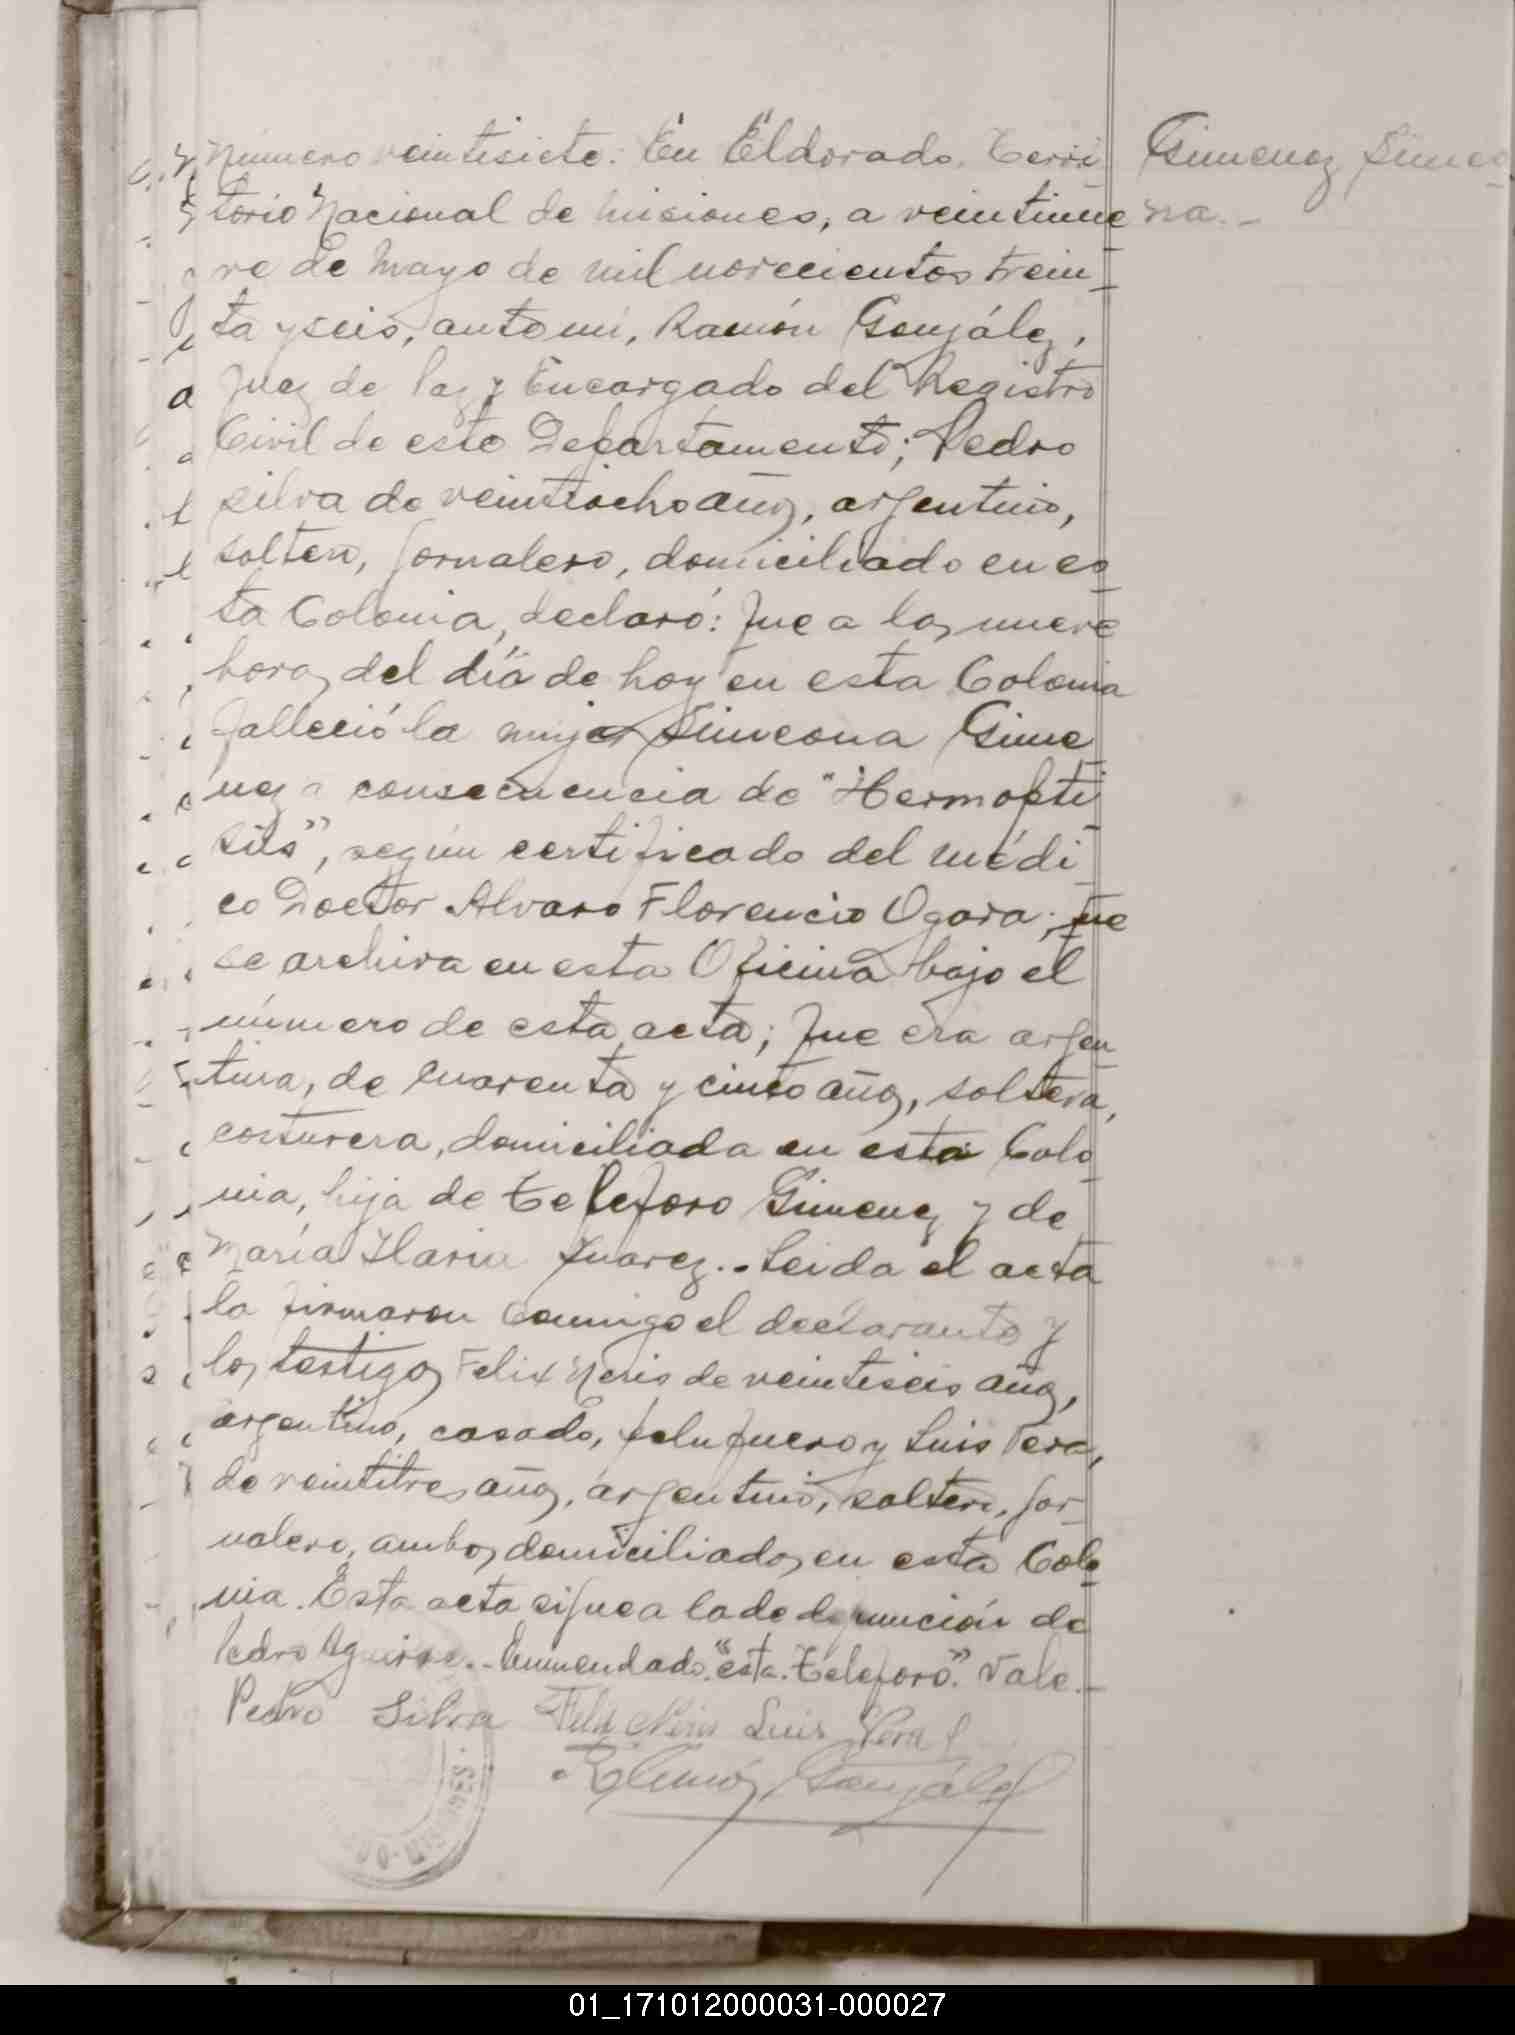 Número veintisiete: En Eldorado, Terri-
torio Nacional de Misiones, a veintinue-
ve de Mayo de mil novecientos trein-
ta y seis, ante mi, Ramón González,
Juez de Paz y Encargado del Registro
Civil de este Departamento; Pedro
Silva de veintiocho años, argentino,
soltero, jornalero, domiciliado en es-
ta Colonia, declaró: Que a las nueve
horas del día de hoy en esta Colonia
falleció la mujer Simeona Gime-
nez a consecuencia de "Hermopti-
sis", según certificado del médi-
co Doctor Alvaro Florencio Ogara; que
se archiva en esta Oficina bajo el
número de esta acta; Que era argen-
tina, de cuarenta y cinco años, soltera,
costurera, domiciliada en esta Colo-
nia, hija de Teleforo Gimenez y de
María Ilaria Juarez.- Leida el acta
la firmaron conmigo el declarante y
los testigos Felix Neris de veintiseis años,
argentino, casado, peluquero y Luis Vera,
de veintitres años, argentino, soltero, jor-
nalero, ambos domiciliados en esta Colo-
nia. Esta acta sigue a la de defunción de
Pedro Aguirre.- Enmendado: "esta. Teleforo". Vale.-
Pedro Silva Felix Neris Luis Vera
Ramón González
Gimenez Simeo-
na.-
MISIONES
01_171012000031-000027